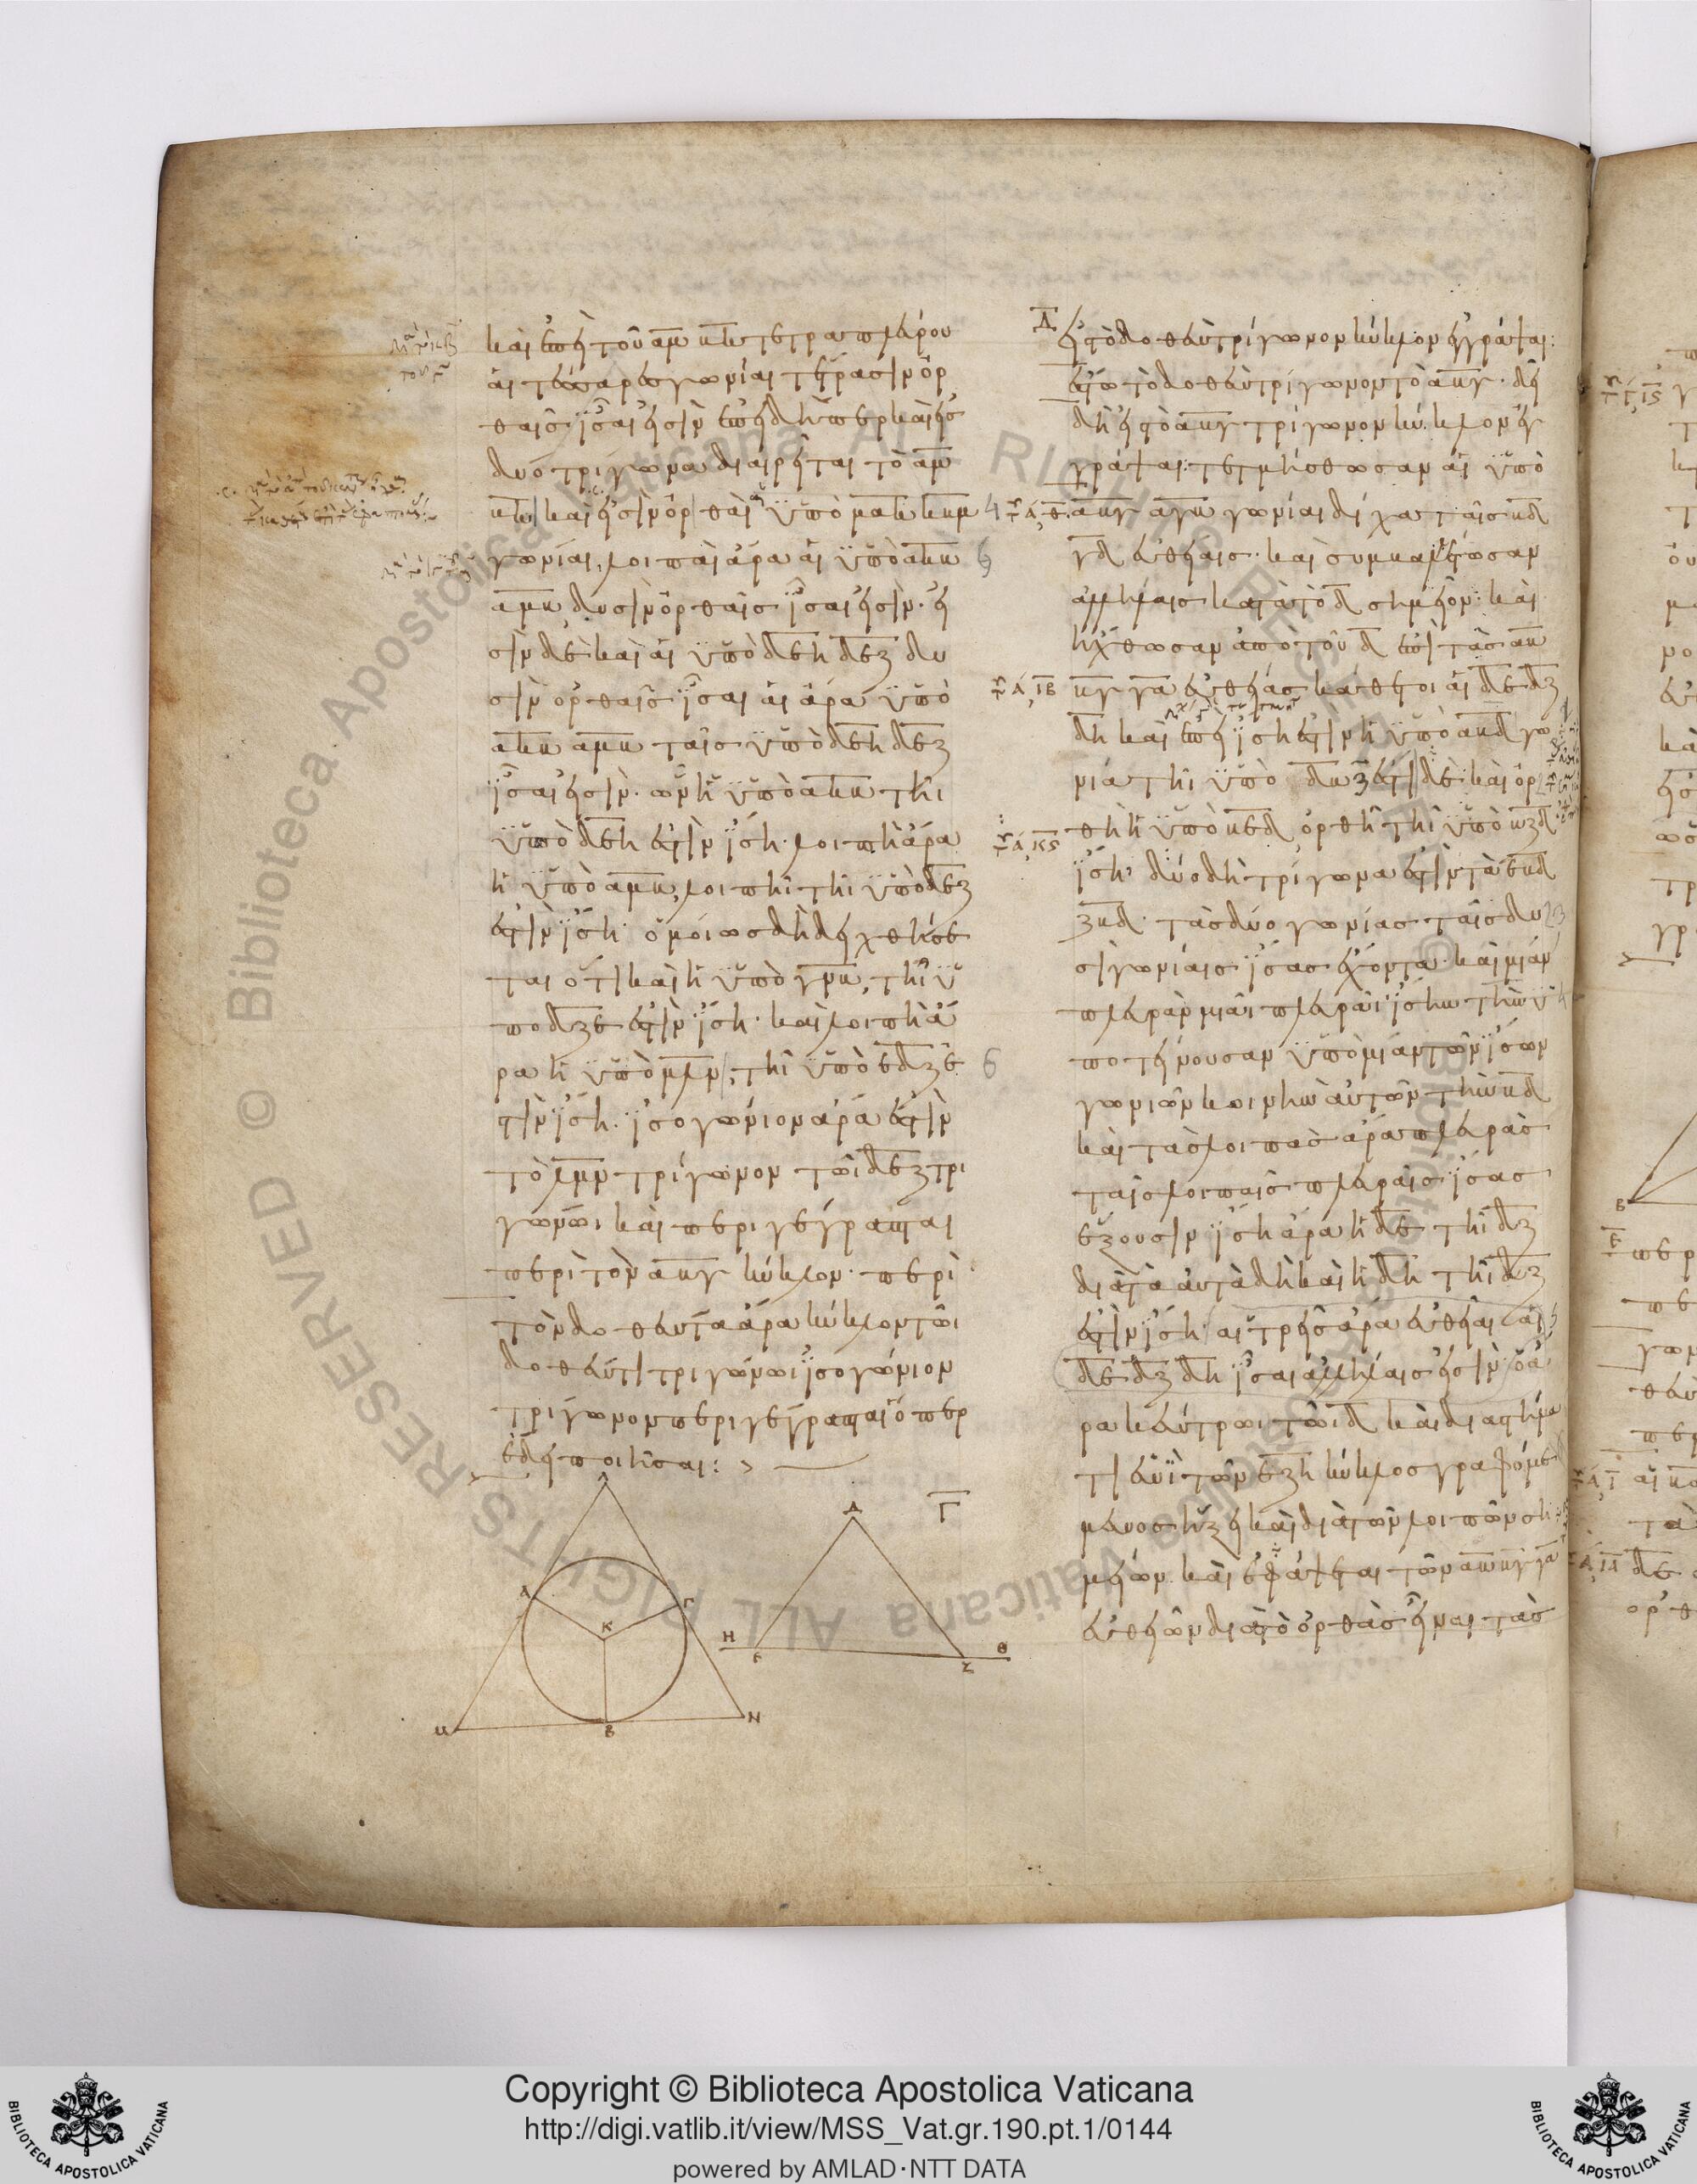 καὶ ἐπεὶ τοῦ αμ βκ τετραπλεύρου
αἱ τέσσαρες γωνίαι τέτρασιν ὀρ
θαῖς ἴσαι εἰσὶν ἐπειδήπερ καὶ εἰς
δύο τρίγωνα διαιρεῖται τὸ αμ
βκ καὶ εἰσὶν ὀρθαὶ αἱ ὑπὸ μακ κβμ
γωνίαι, λοιπαὶ ἄρα αἱ ὑπὸ ακβ
αμβ δυσὶν ὀρθαῖς ἴσαι εἰσίν· εἰ
σὶν δὲ καὶ αἱ ὑπὸ δεη δεζ δυ
σὶν ὀρθαῖς ἴσαι αἱ ἄρα ὑπὸ
ακβ αμβ ταῖς ὑπὸ δεη δεζ
ἴσαι εἰσίν· ὧν ἡ ὑπὸ ακβ τῆι
ὑπὸ δεη ἐστὶν ἴση· λοιπὴ ἄρα
ἡ ὑπὸ αμβ, λοιπῆι τῆι ὑπὸ δεζ
ἐστὶν ἴση· ὁμοίως δὴ δειχθήσε
ται ὅτι καὶ ἡ ὑπὸ λνβ, τῆι ὑ
πο δζε ἐστὶν ἴση· καὶ λοιπὴ ἄ
ρα ἡ ὑπὸ μλν, τῆι ὑπὸ εδζ ἐ
στὶν ἴση· ἰσογώνιον ἄρα ἐστὶν
τὸ λμν τρίγωνον τῶι δεζ τρι
γώνωι καὶ περιγέγραπται
περὶ τὸν αβγ κύκλον· περὶ
τὸν δοθέντα ἄρα κύκλον τῶι
δοθέντι τριγώνωι ἰσογώνιον
τρίγωνον περιγέγραπται ὅπερ
ἔδει ποιῆσαι:
Γ
Λ
Α
Γ
Κ
Μ
Β
Ν
Δ
Η
Ε
Ζ
Θ
Δ
εἰς τὸ δοθὲν τρίγωνον κύκλον ἐγγράψαι:
ἔστω τὸ δοθὲν τρίγωνον τὸ αβγ· δεῖ
δὴ εἰς τὸ αβγ τρίγωνον κύκλον ἐγ
γράψαι: τετμήσθωσαν αἱ ὑπὸ
αβγ αγβ γωνίαι δίχα ταῖς βδ
γδ εὐθείαις· καὶ συμβαλέτωσαν
ἀλλήλαις κατὰ τὸ δ σημεῖον· καὶ
ἤχθωσαν ἀπὸ τοῦ δ ἐπὶ τὰς αβ
βγ γα εὐθείας κάθετοι αἱ δε δζ
δη καὶ ἐπεὶ ἴση ἐστὶν ἡ ὑπὸ αβδ γω
νία τῆι ὑπὸ δβζ ἐστὶ δὲ καὶ ὀρ
θὴ ἡ ὑπὸ βεδ ὀρθῆι τῆι ὑπὸ βζδ
ἴση· δύο δὴ τρίγωνά ἐστιν τὰ εβδ
ζβδ τὰς δύο γωνίας ταῖς δυ
σὶ γωνίαις ἴσας ἔχοντα· καὶ μίαν
πλευρὰν μιᾶι πλευρᾶι ἴσην τὴν ὑ
ποτείνουσαν ὑπὸ μίαν τῶν ἴσων
γωνιῶν κοινὴν αὐτῶν τὴν βδ
καὶ τὰς λοιπὰς ἄρα πλευρὰς
ταῖς λοιπαῖς πλευραῖς ἴσας
ἕξουσιν ἴση ἄρα ἡ δε τῆι δζ
διὰ τὰ αὐτὰ δὴ καὶ ἡ δη τῆι δζ
ἐστὶν ἴση· αἱ τρεῖς ἄρα εὐθεῖαι αἱ
δε δζ δη ἴσαι ἀλλήλαις εἰσίν· ὁ ἄ
ρα κέντρωι τῶι δ καὶ διαστήμα
τι ἑνὶ τῶν εζη κύκλος γραφόμε
μενος ἥξει καὶ διὰ τῶν λοιπῶν ση
μείων· καὶ ἐφάψεται τῶν αβ βγ γα
εὐθειῶν διὰ τὸ ὀρθὰς εἶναι τὰς
Copyright © Biblioteca Apostolica Vaticana
http://digi.vatlib.it/view/MSS_Vat.gr.190.pt.1/0144
powered by AMLAD·NTT DATA